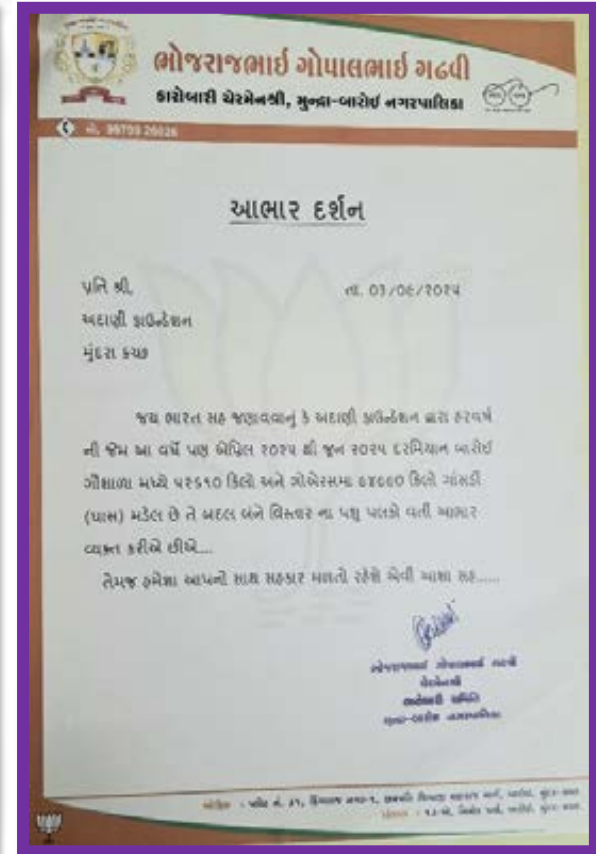 ભોજરાજભાઈ ગોપાલભાઈ ગઢવી
કારોબારી ચેરમેનશ્રી, મુન્દ્રા-બારોઈ નગરપાલિકા
મો. 99799 26026
આભાર દર્શન
પ્રતિ શ્રી,
તા. 03/0૬/૨૦૨૫
અદાણી ફાઉન્ડેશન
મુંદરા કચ્છ
જય ભારત સહ જણાવવાનું કે અદાણી ફાઉન્ડેશન દ્વારા હરવર્ષ
ની જેમ આ વર્ષે પણ એપ્રિલ ૨૦૨૫ થી જૂન ૨૦૨૫ દરમિયાન બારોઈ
ગૌશાળા મધ્યે ૫૨૬૧૦ કિલો અને ગોએરસમા કિલો ગાંસડી
(ઘાસ) મડેલ છે તે બદલ બંને વિસ્તાર ના પશુ પાલકો વતી આભાર
વ્યક્ત કરીએ છીએ...
તેમજ હમેશા આપનો સાથ સહકાર મળતો રહેશે એવી આશા સહ......
ભોજરાજભાઈ ગોપાલભાઈ ગઢવી
ચેરમેનશ્રી
કારોબારી સમિતિ
મુન્દ્રા-બારોઈ નગરપાલિકા